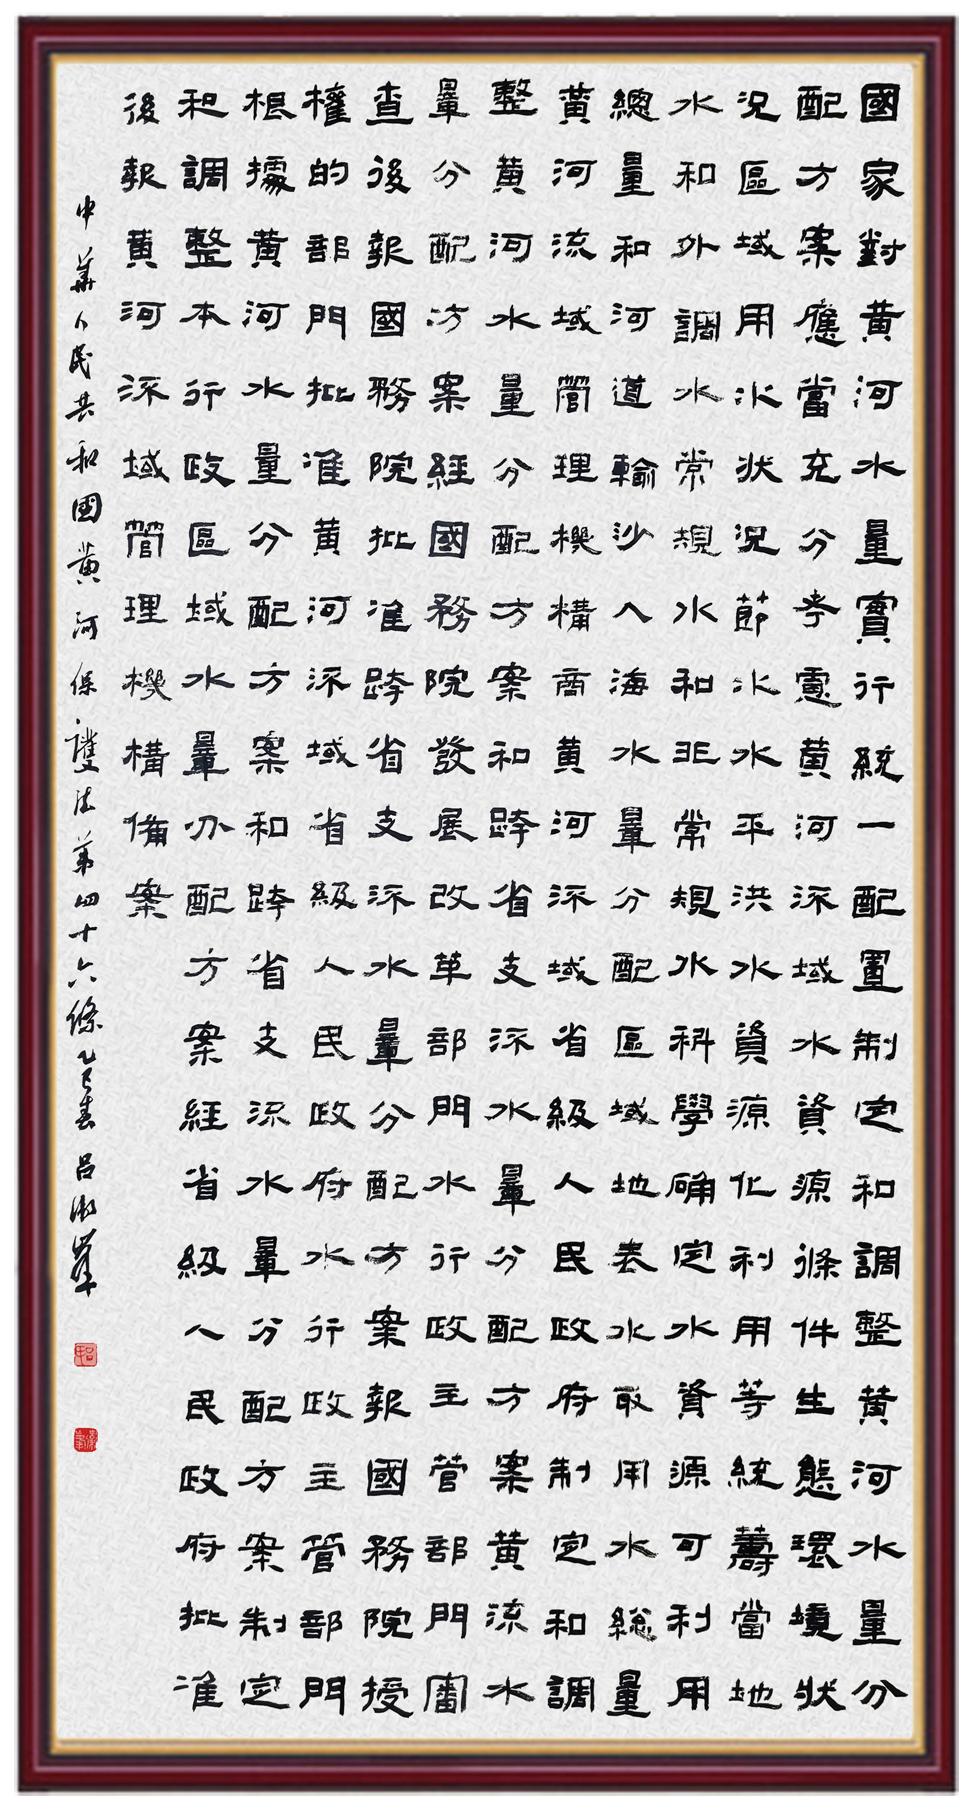 國家對黄河水量實行統一配置制定和調整黄河水量分
配方案應當充分考慮黄河流域水資源條件生態環境狀
況區域用水狀況節水水平洪水資源化利用等統籌當地
水和外調水常規水和非常規水科學确定水資源可利用
總量和河道輸沙入海水量分配區域地表水取用水總量
黄河流域管理機構商黄河流域省級人民政府制定和調
整黄河水量分配方案和跨省支流水量分配方案黄流水
量分配方案經國務院發展改革部門水行政主管部門審
查後報國務院批准跨省支流水量分配方案報國務院授
權的部門批准黄河流域省級人民政府水行政主管部門
根據黄河水量分配方案和跨省支流水量分配方案制定
和調整本行政區域水量分配方案經省級人民政府批准
後報黄河流域管理機構備案
中華人民共和國黄河保護法第四十六條乙巳春 吕淑